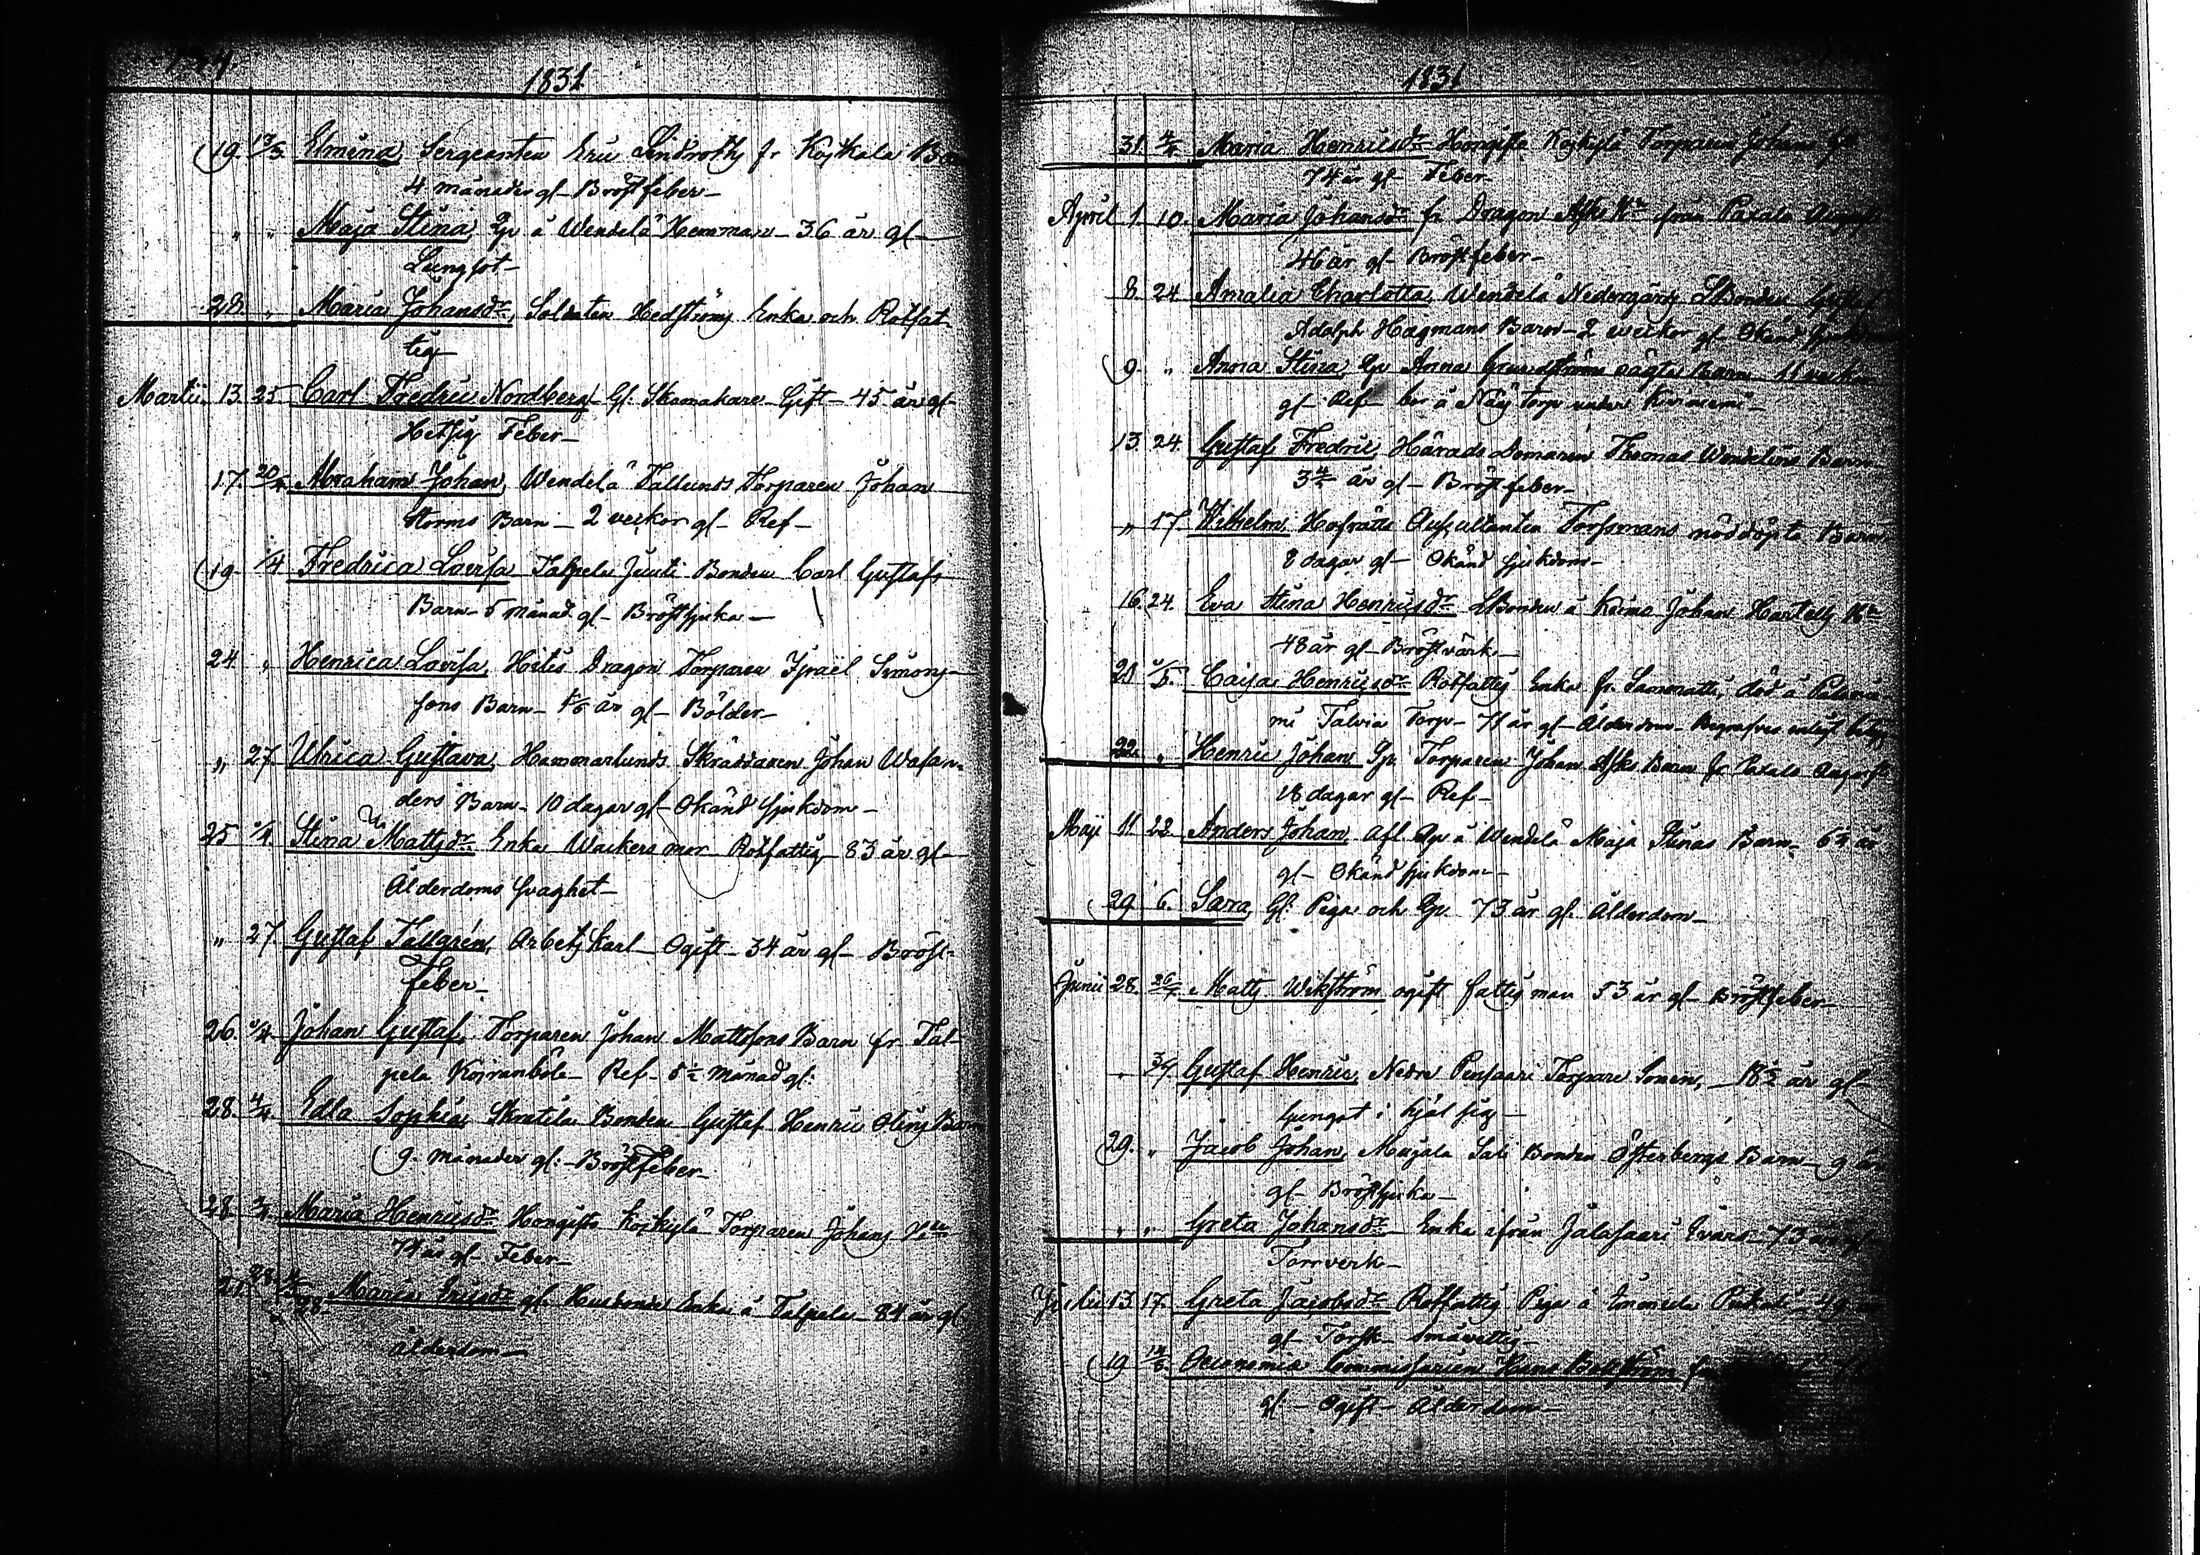 1831
19. 13/3. Elmina, Sergeanten Eric Lindroths fr Kojkala Barn
4 månader gl- Bröstfeber-
" " Maja Stina, Qp å Wendelä Hemman- 36 år gl-
Lungsot-
28. " Maria Johansdr, Soldaten Hedströms Enka och Rotfat
tig-
Martii 13. 25 Carl Fredric Nordberg Gl: Skomakare- Gift- 45 år gl-
Hetsig Feber-
17. 20/4 Abraham Johan, Wendelä Tallunds Torparen Johan
Storms Barn- 2 veckor gl- Ref-
19 1/4 Fredrica Lovisa Talpela Juuti Bonden Carl Gustafs
Barn- 5 månad gl- Bröstsjuka-
24 " Henrica Lovisa, Heites Dragon Torparen Israël Simons-
sons Barn- år gl- Bölder-
" 27 Ulrica Gustava, Hammarlunds Skräddaren Johan Wasan-
ders Barn- 10 dagar gl- Okänd sjukdom-
25 1/4. Stina Mattsdr Enka Wackers mor- Rotfattig 83 år gl-
Ålderdoms svaghet-
" 27 Gustaf Tallgren, Arbetskarl- Ogift- 34 år gl- Bröst-
feber-
26. 1/4 Johan Gustaf, Torparen Johan Mattssons Barn fr Tal-
pela Kojvanböle- Ref- 5½ månad gl:
28. 4/4 Edla Sophia, Skratila Bonden Gustaf Henric Olins Barn
9. månader gl:- Bröstfeber-
28. Maria Henricsdr Hongifta Kojkylä Torparen Johans
74 år gl- Feber-
Maria Ericsdr gl. Husbonde Enka å Talpela- 84 år gl
ålderdom-
1831
31. Maria Henricsdr Hongifta Kojkylä Torparen Johans
74 år gl- Feber-
April 1. 10. Maria Johansdr fr Dragon Asks från Paxala
46 år gl- Bröstfeber-
8. 24 Amalia Charlotta, Wendelä Nedergårds Bonden
Adolph Hagmans Barn- 2 veckor gl- Okänd
9. " Anna Stina, Qp Anna Grundströms oägta Barn 11 veckor
gl- Ref- bor å Näs torp under
13. 24. Gustaf Fredric, Härads Domaren Thomas Wendelins Barn
år gl- Bröstfeber-
" 17. Wilhelm, Hofrätts Auscultanten Forssmans nöddöpta Barn
8 dagar gl- Okänd sjukdom-
16. 24. Eva Stina Henricsdr Bonden å Keimo Johan
48 år gl- Bröstvärk-
20 1/5. Caisa Henricsdr Rotfattig Enka fr. Sammatti, död å
mi Talvia Torp- 71 år gl- Ålderdom- Begrafves enligt
22. " Henric Johan, Qp Torparen Johan Asks Barn fr Paxala
18 dagar gl- Ref-
Maji 11 22. Anders Johan, Afl. Qp å Wendelä Maja Stinas Barn- år
gl- Okänd sjukdom-
29. 6. Sara, Gl: Piga och Qp. 73 år gl. Ålderdom-
Junii 28. 26/7. Matts Wikström ogift fattig man 53 år gl- Bröstfeber-
" 3/7 Gustaf Henric, Nedre Pensaari Torpare Sonen, år gl-
sprungit i hjäl sig-
29. " Jacob Johan, Majala Sali Bonden Österbergs Barn- 9 år
gl- Bröstsjuka-
" " Greta Johansdr Enka ifrån Jalasaari Evärd- 73 år gl-
Torrverk-
Julii 13. 17. Greta Jacobsdr Rotfattig Piga å 49
gl- Torsk- Småvettig-
19 14/8. Oeconomie Commissarien Hans
gl:- Ogift- Ålderdom-